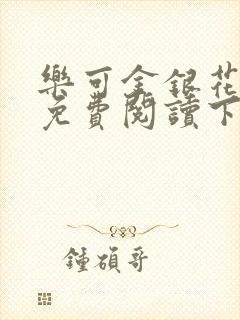 樂可金銀花
免費閱讀下
鍾碩哥